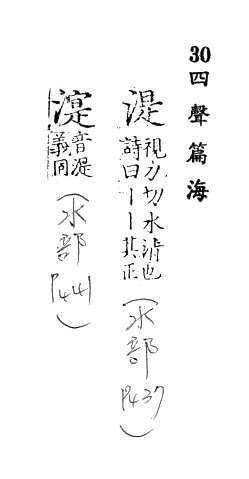 30四聲篇海
湜
視力切水清也
詩曰丨丨其正
(水部
P437)
音湜
義同
(水部
P441)